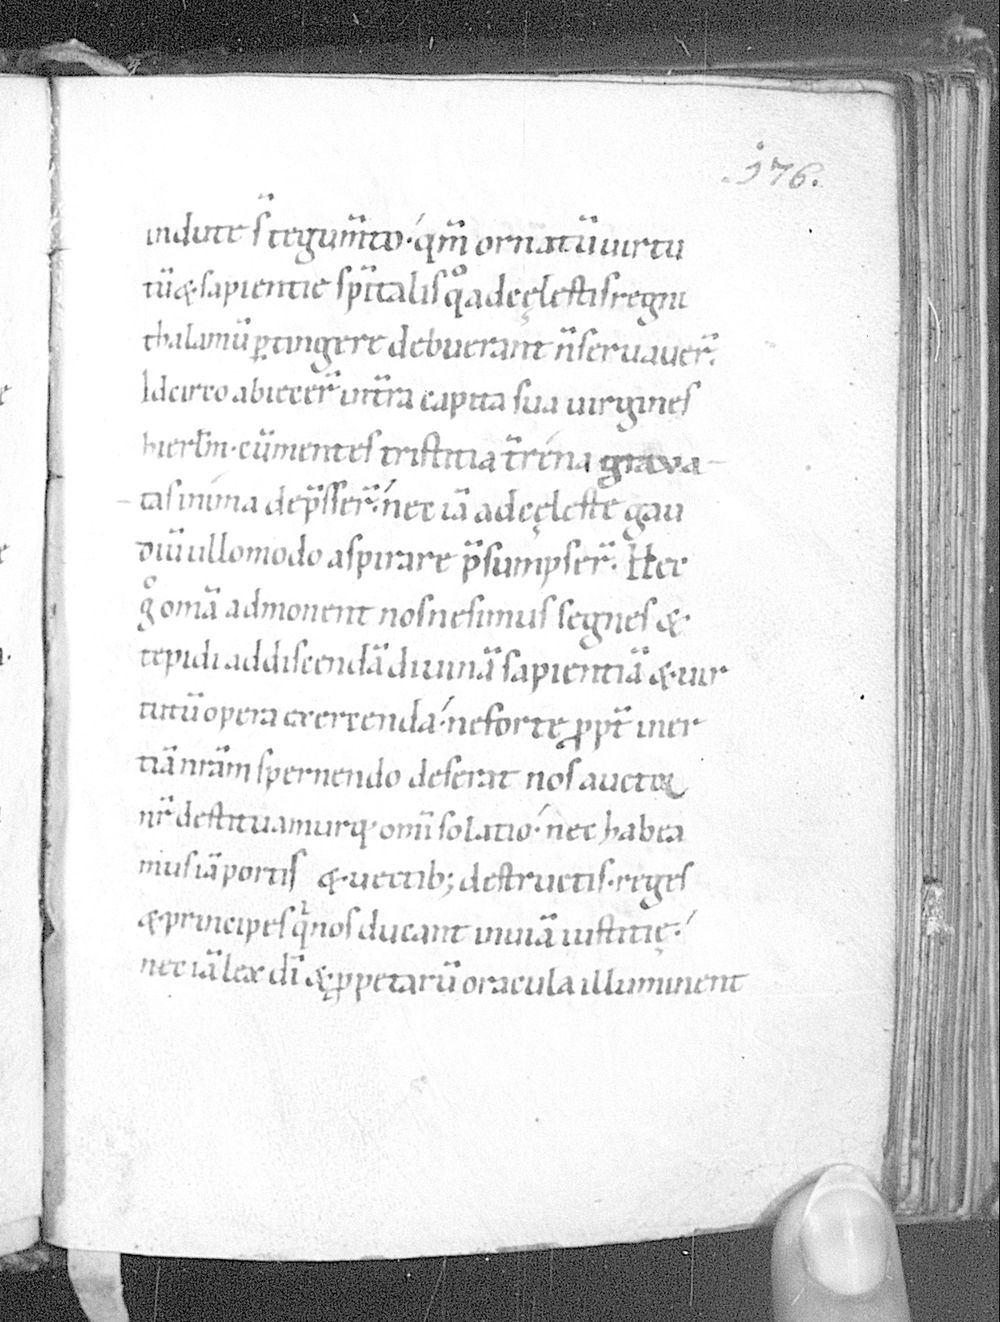 176.
indute s̄ tegum̄to· qm̄ ornatū uirtu
tū & sapientie spītalis qͦ ad ęlestis regni
thalamū ꝑtingere debuerant n̄ seruauer̄.
Idcirco abiecer̄ in tr̄a capita sua uirgines
hierłm· cū mentes tristitia tr̄ena graua
tas in ima dep̄sser̄· nec iā ad cęleste gau
diū ullomodo aspirare p̄sumpser̄. Hec
gͦ om̄a admonent nos ne simus segnes &
tepidi ad discendā diuinā sapientiā & uir
tutū opera exercenda· ne forte ꝓpt̄ iner
tiā nr̄am spernendo deserat nos auctor
nr̄ destituamurq· om̄i solatio· nec habea
mus iā portis & uectib; destructis· reges
& principes qͥ nos ducant in uiā iustitię·
nec iā lex dī & ꝓpetarū oracula illuminent